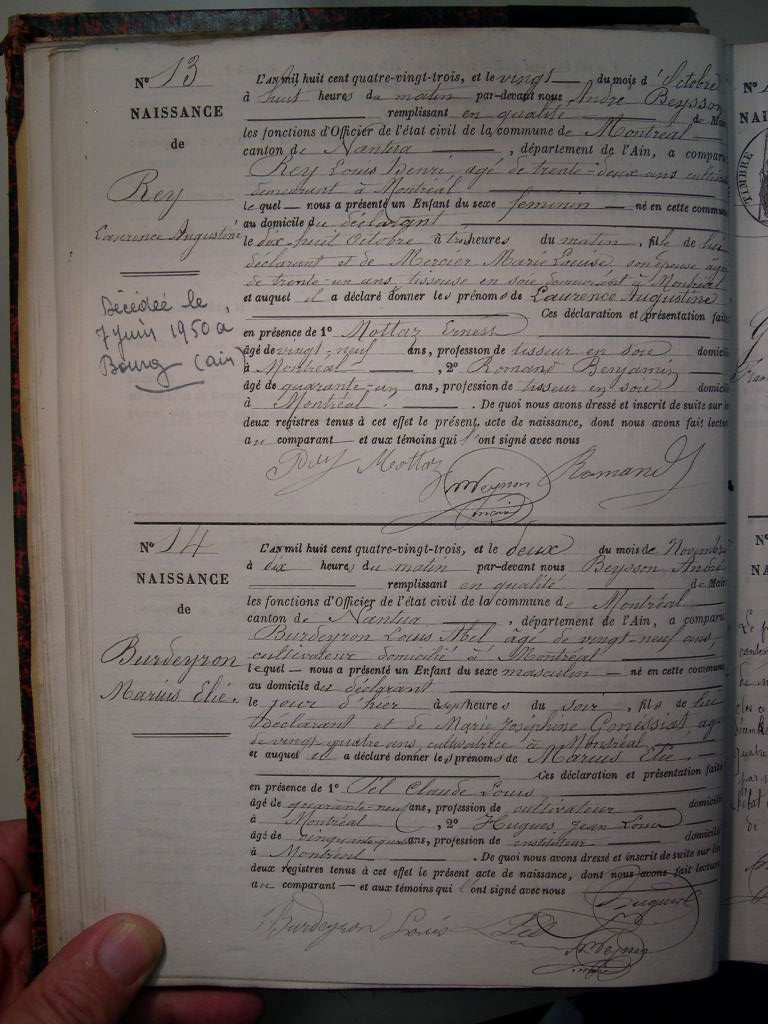 N° 13
NAISSANCE
de
Rey
Laurence Augustine
Décédée le
7 juin 1950 à
Bourg (ain)
L'AN mil huit cent quatre-vingt-trois, et le vingt du mois d'Octobre
à huit heures du matin par-devant nous André Beysson
remplissant en qualité de Mai
les fonctions d'Officier de l'état civil de la commune de Montréal
canton de Nantua, département de l'Ain, a compar
Rey Louis Henri, agé de trente-deux ans
demeurant à Montréal
lequel nous a présenté un Enfant du sexe féminin né en cette commun
au domicile du déclarant
le dix-huit Octobre à trois heures du matin, fille de lui
déclarant et de Mercier Marie Louise, son épouse âgée
de trente-un ans, tisseuse en soie demeurant à Montréal
et auquel il a déclaré donner les prénoms de Laurence Augustine
Ces déclaration et présentation fait
en présence de 1° Mottaz Ernest
âgé de vingt-neuf ans, profession de tisseur en soie domicil
à Montréal, 2° Romand Benjamin
âgé de quarante-un ans, profession de tisseur en soie domici
à Montréal. De quoi nous avons dressé et inscrit de suite sur
deux registres tenus à cet effet le présent acte de naissance, dont nous avons fait lectur
au comparant et aux témoins qui l'ont signé avec nous
Rey Mottaz Romand
N° 14
NAISSANCE
de
Burdeyron
Marius Elie.
L'AN mil huit cent quatre-vingt-trois, et le deux du mois de Novembre
à dix heures du matin par-devant nous Beysson André
remplissant en qualité de Mair
les fonctions d'Officier de l'état civil de la commune de Montréal
canton de Nantua, département de l'Ain, a compar
Burdeyron Louis Abel agé de vingt-neuf ans,
cultivateur domicilié à Montréal
lequel nous a présenté un Enfant du sexe masculin né en cette commun
au domicile du déclarant
le jour d'hier à sept heures du soir, fils de lui
Déclarant et de Marie Joséphine Gonissiat, ag
de vingt quatre ans, cultivatrice à Montréal
et auquel il a déclaré donner les prénoms de Marius Elie.
Ces déclaration et présentation faite
en présence de 1° Claude Louis
âgé de quarante-neuf ans, profession de cultivateur domicili
à Montréal, 2° Hugues Jean Louis
âgé de ans, profession de instituteur domicili
à Montréal. De quoi nous avons dressé et inscrit de suite sur les
deux registres tenus à cet effet le présent acte de naissance, dont nous avons fait lecture
au comparant et aux témoins qui l'ont signé avec nous
Burdeyron Louis
TIMBRE